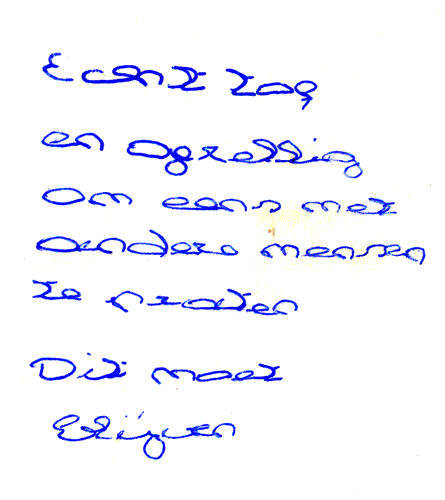 Echt tof,
en prettig
om eens met
andere mensen
te praten
Dit moet
Blijven